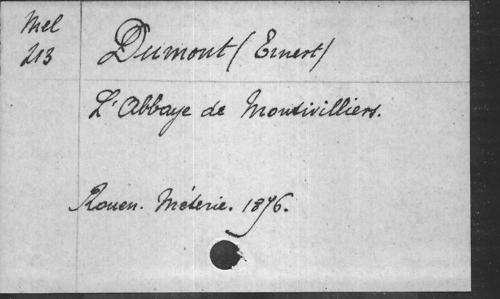 Mel
213
Dumont (Ernest)
L'Abbaye de Montivilliers.
Rouen. Méterie. 1876.